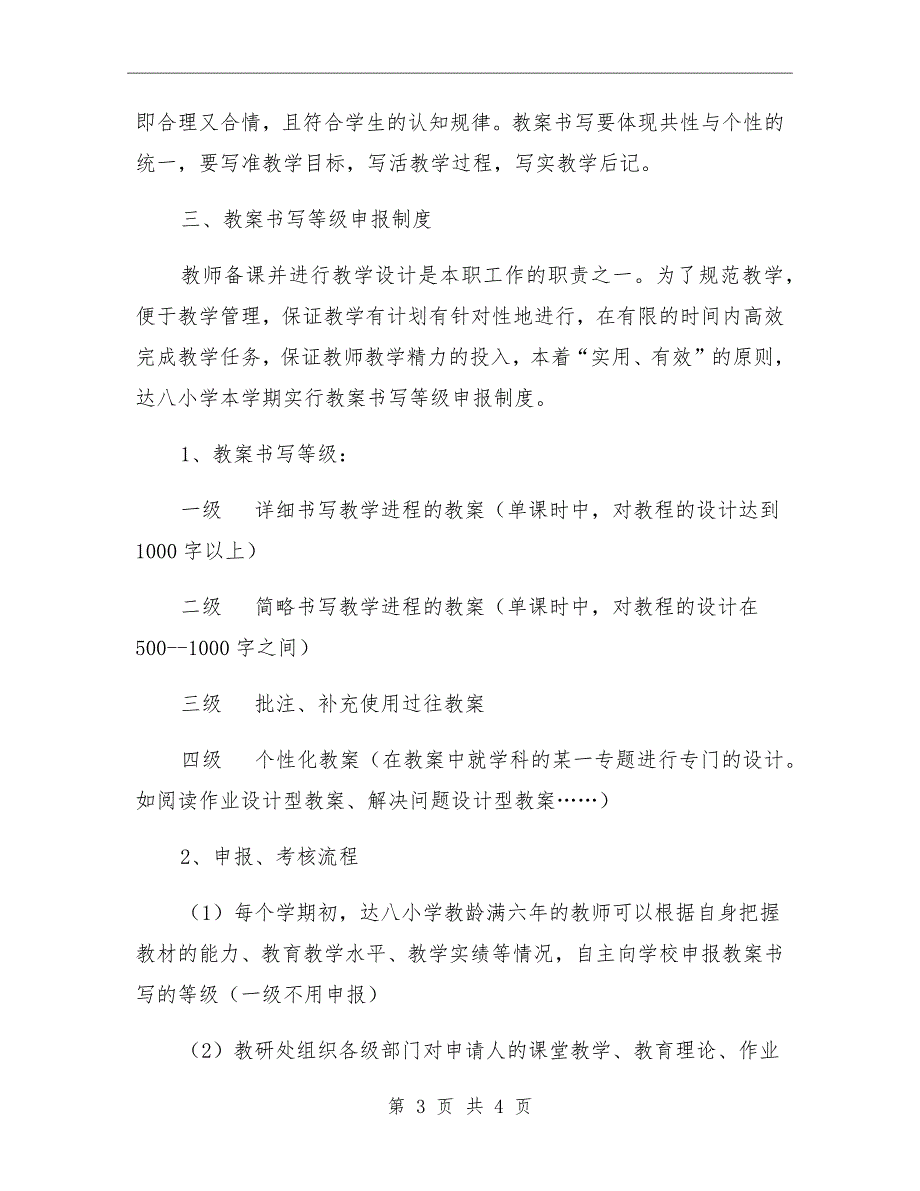 即合理又合情，且符合学生的认知规律。教案书写要体现共性与个性的
统一，要写准教学目标，写活教学过程，写实教学后记。
三、教案书写等级申报制度
教师备课并进行教学设计是本职工作的职责之一。为了规范教学，
便于教学管理，保证教学有计划有针对性地进行，在有限的时间内高效
完成教学任务，保证教师教学精力的投入，本着“实用、有效”的原则，
达八小学本学期实行教案书写等级申报制度。
1、教案书写等级：
一级 详细书写教学进程的教案（单课时中，对教程的设计达到
1000 字以上）
二级 简略书写教学进程的教案（单课时中，对教程的设计在
500--1000 字之间）
三级 批注、补充使用过往教案
四级 个性化教案（在教案中就学科的某一专题进行专门的设计。
如阅读作业设计型教案、解决问题设计型教案……）
2、申报、考核流程
（1）每个学期初，达八小学教龄满六年的教师可以根据自身把握
教材的能力、教育教学水平、教学实绩等情况，自主向学校申报教案书
写的等级（一级不用申报）
（2）教研处组织各级部门对申请人的课堂教学、教育理论、作业
第 3 页 共 4 页